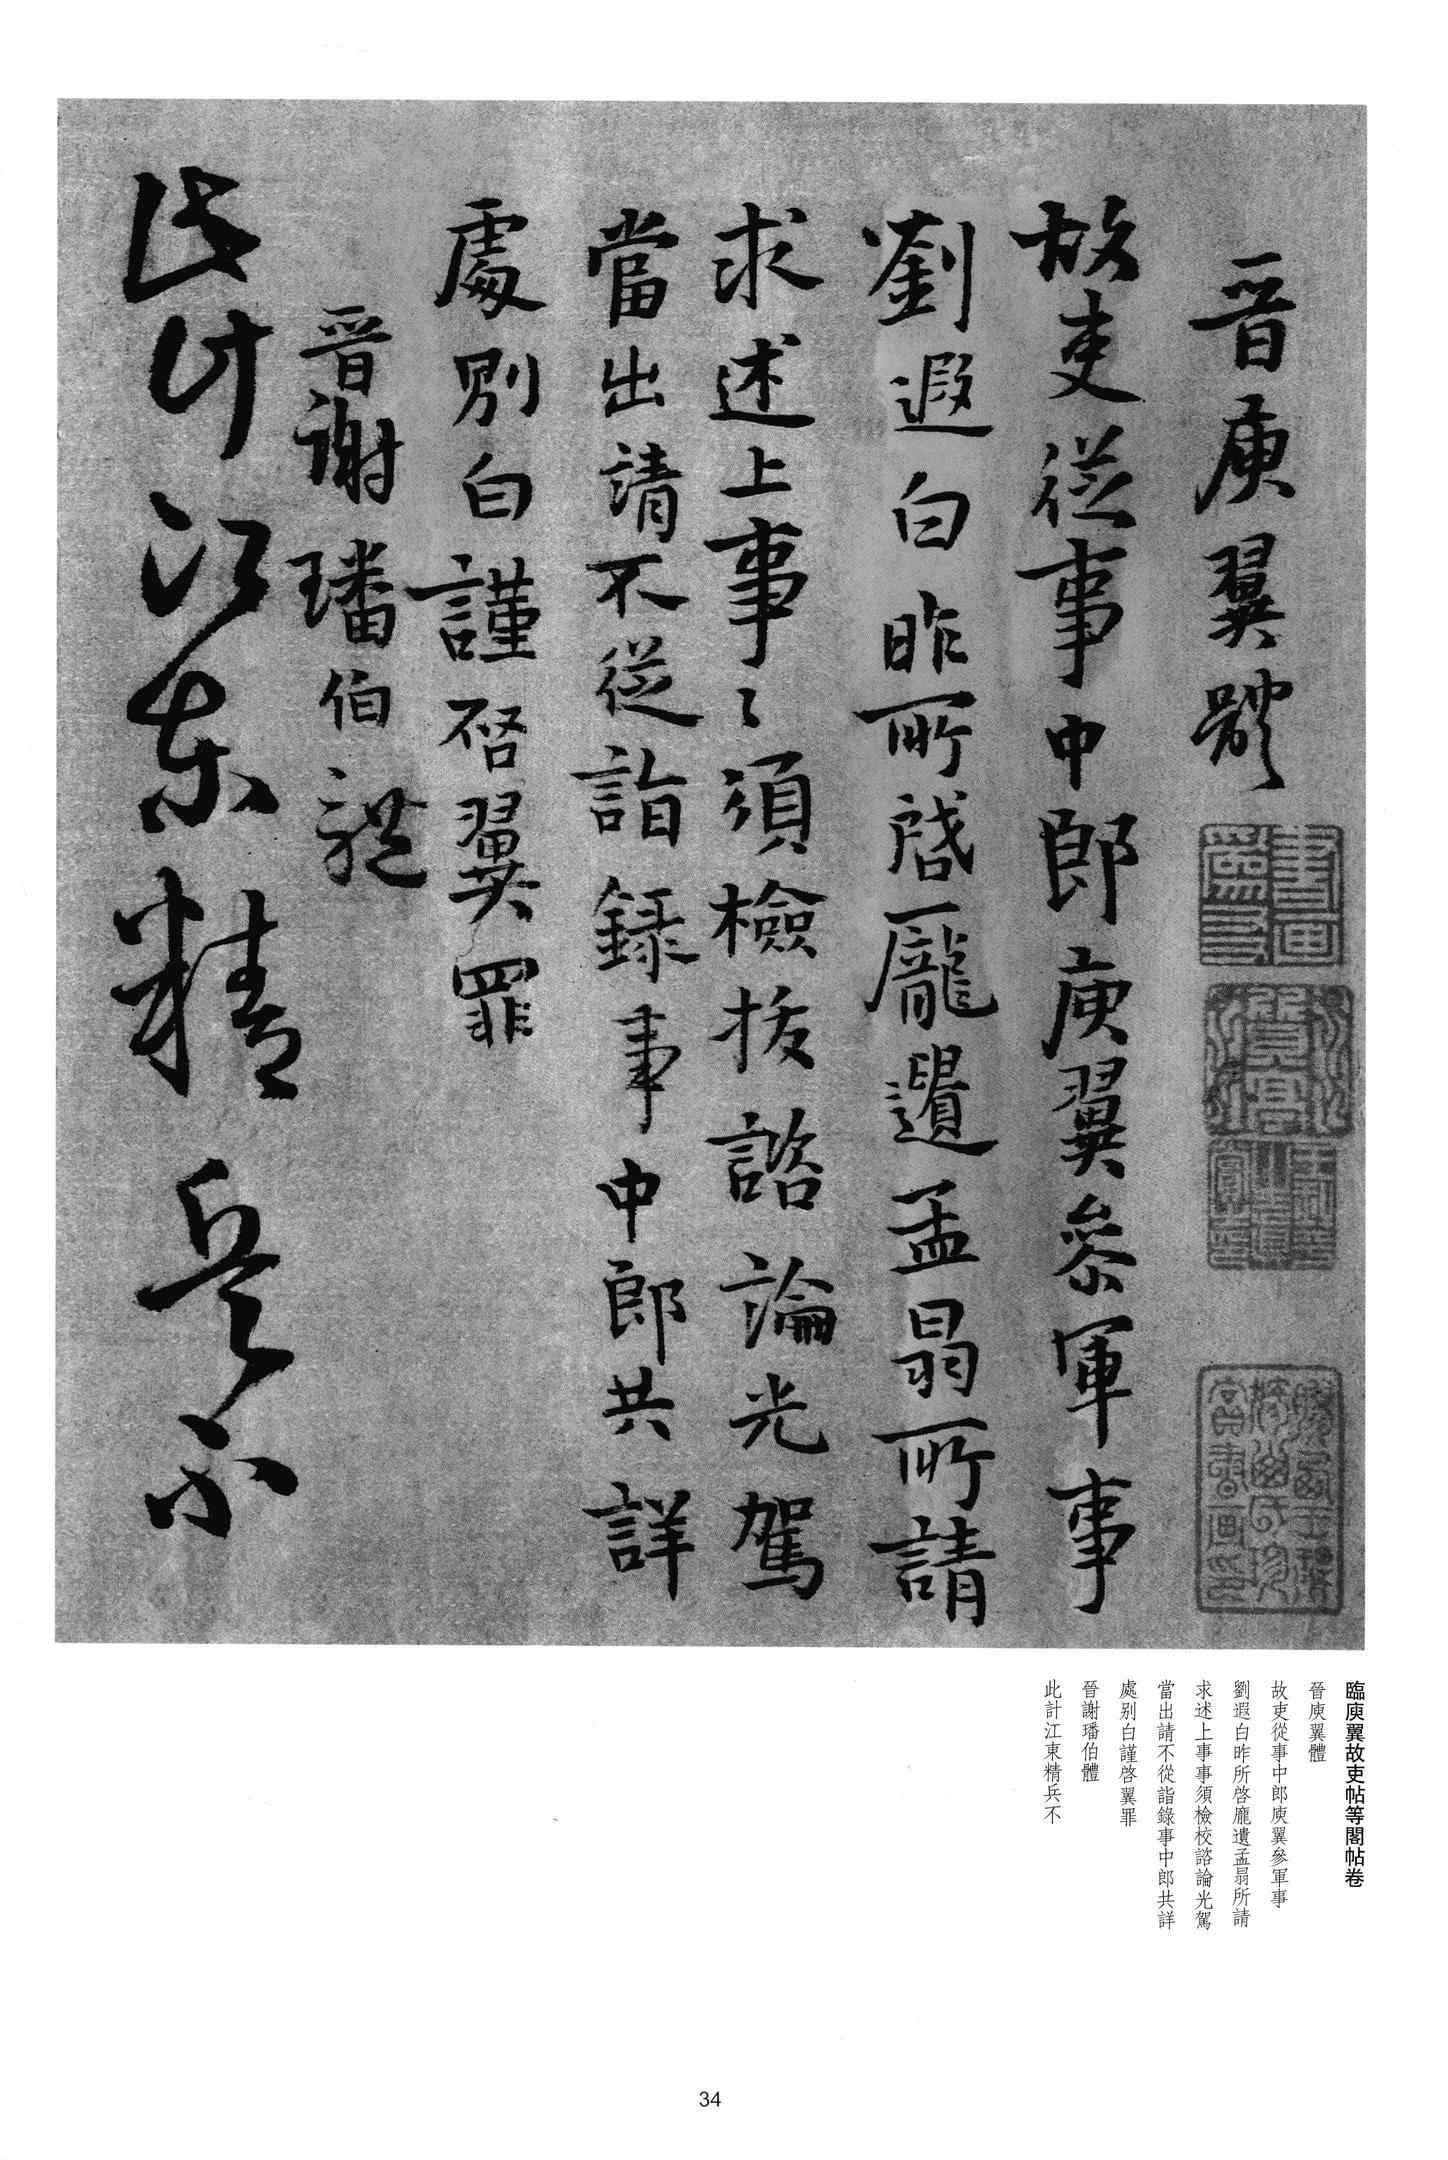 晉庾翼體
故吏從事中郎庾翼參軍事
劉遐白昨所啓龐遺孟昺所請
求述上事〻須檢校諮論光駕
當出請不從詣錄事中郎共詳
處別白謹啓翼罪
晉謝璠伯體
此計江東精兵不
臨庾翼故吏帖等閣帖卷
晉庾翼體
故吏從事中郎庾翼參軍事
劉遐白昨所啓龐遺孟昺所請
求述上事事須檢校諮論光駕
當出請不從詣錄事中郎共詳
處別白謹啓翼罪
晉謝璠伯體
此計江東精兵不
34